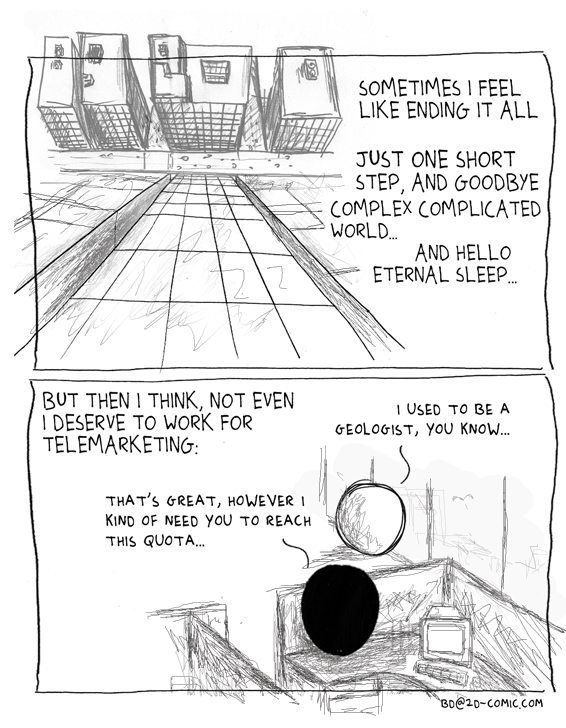 SOMETIMES I FEEL
LIKE ENDING IT ALL
JUST ONE SHORT
STEP, AND GOODBYE
COMPLEX COMPLICATED
WORLD...
AND HELLO
ETERNAL SLEEP...
BUT THEN I THINK, NOT EVEN
I DESERVE TO WORK FOR
TELEMARKETING:
I USED TO BE A
GEOLOGIST, YOU KNOW...
THAT'S GREAT, HOWEVER I
KIND OF NEED YOU TO REACH
THIS QUOTA...
BD@2D-COMIC.COM